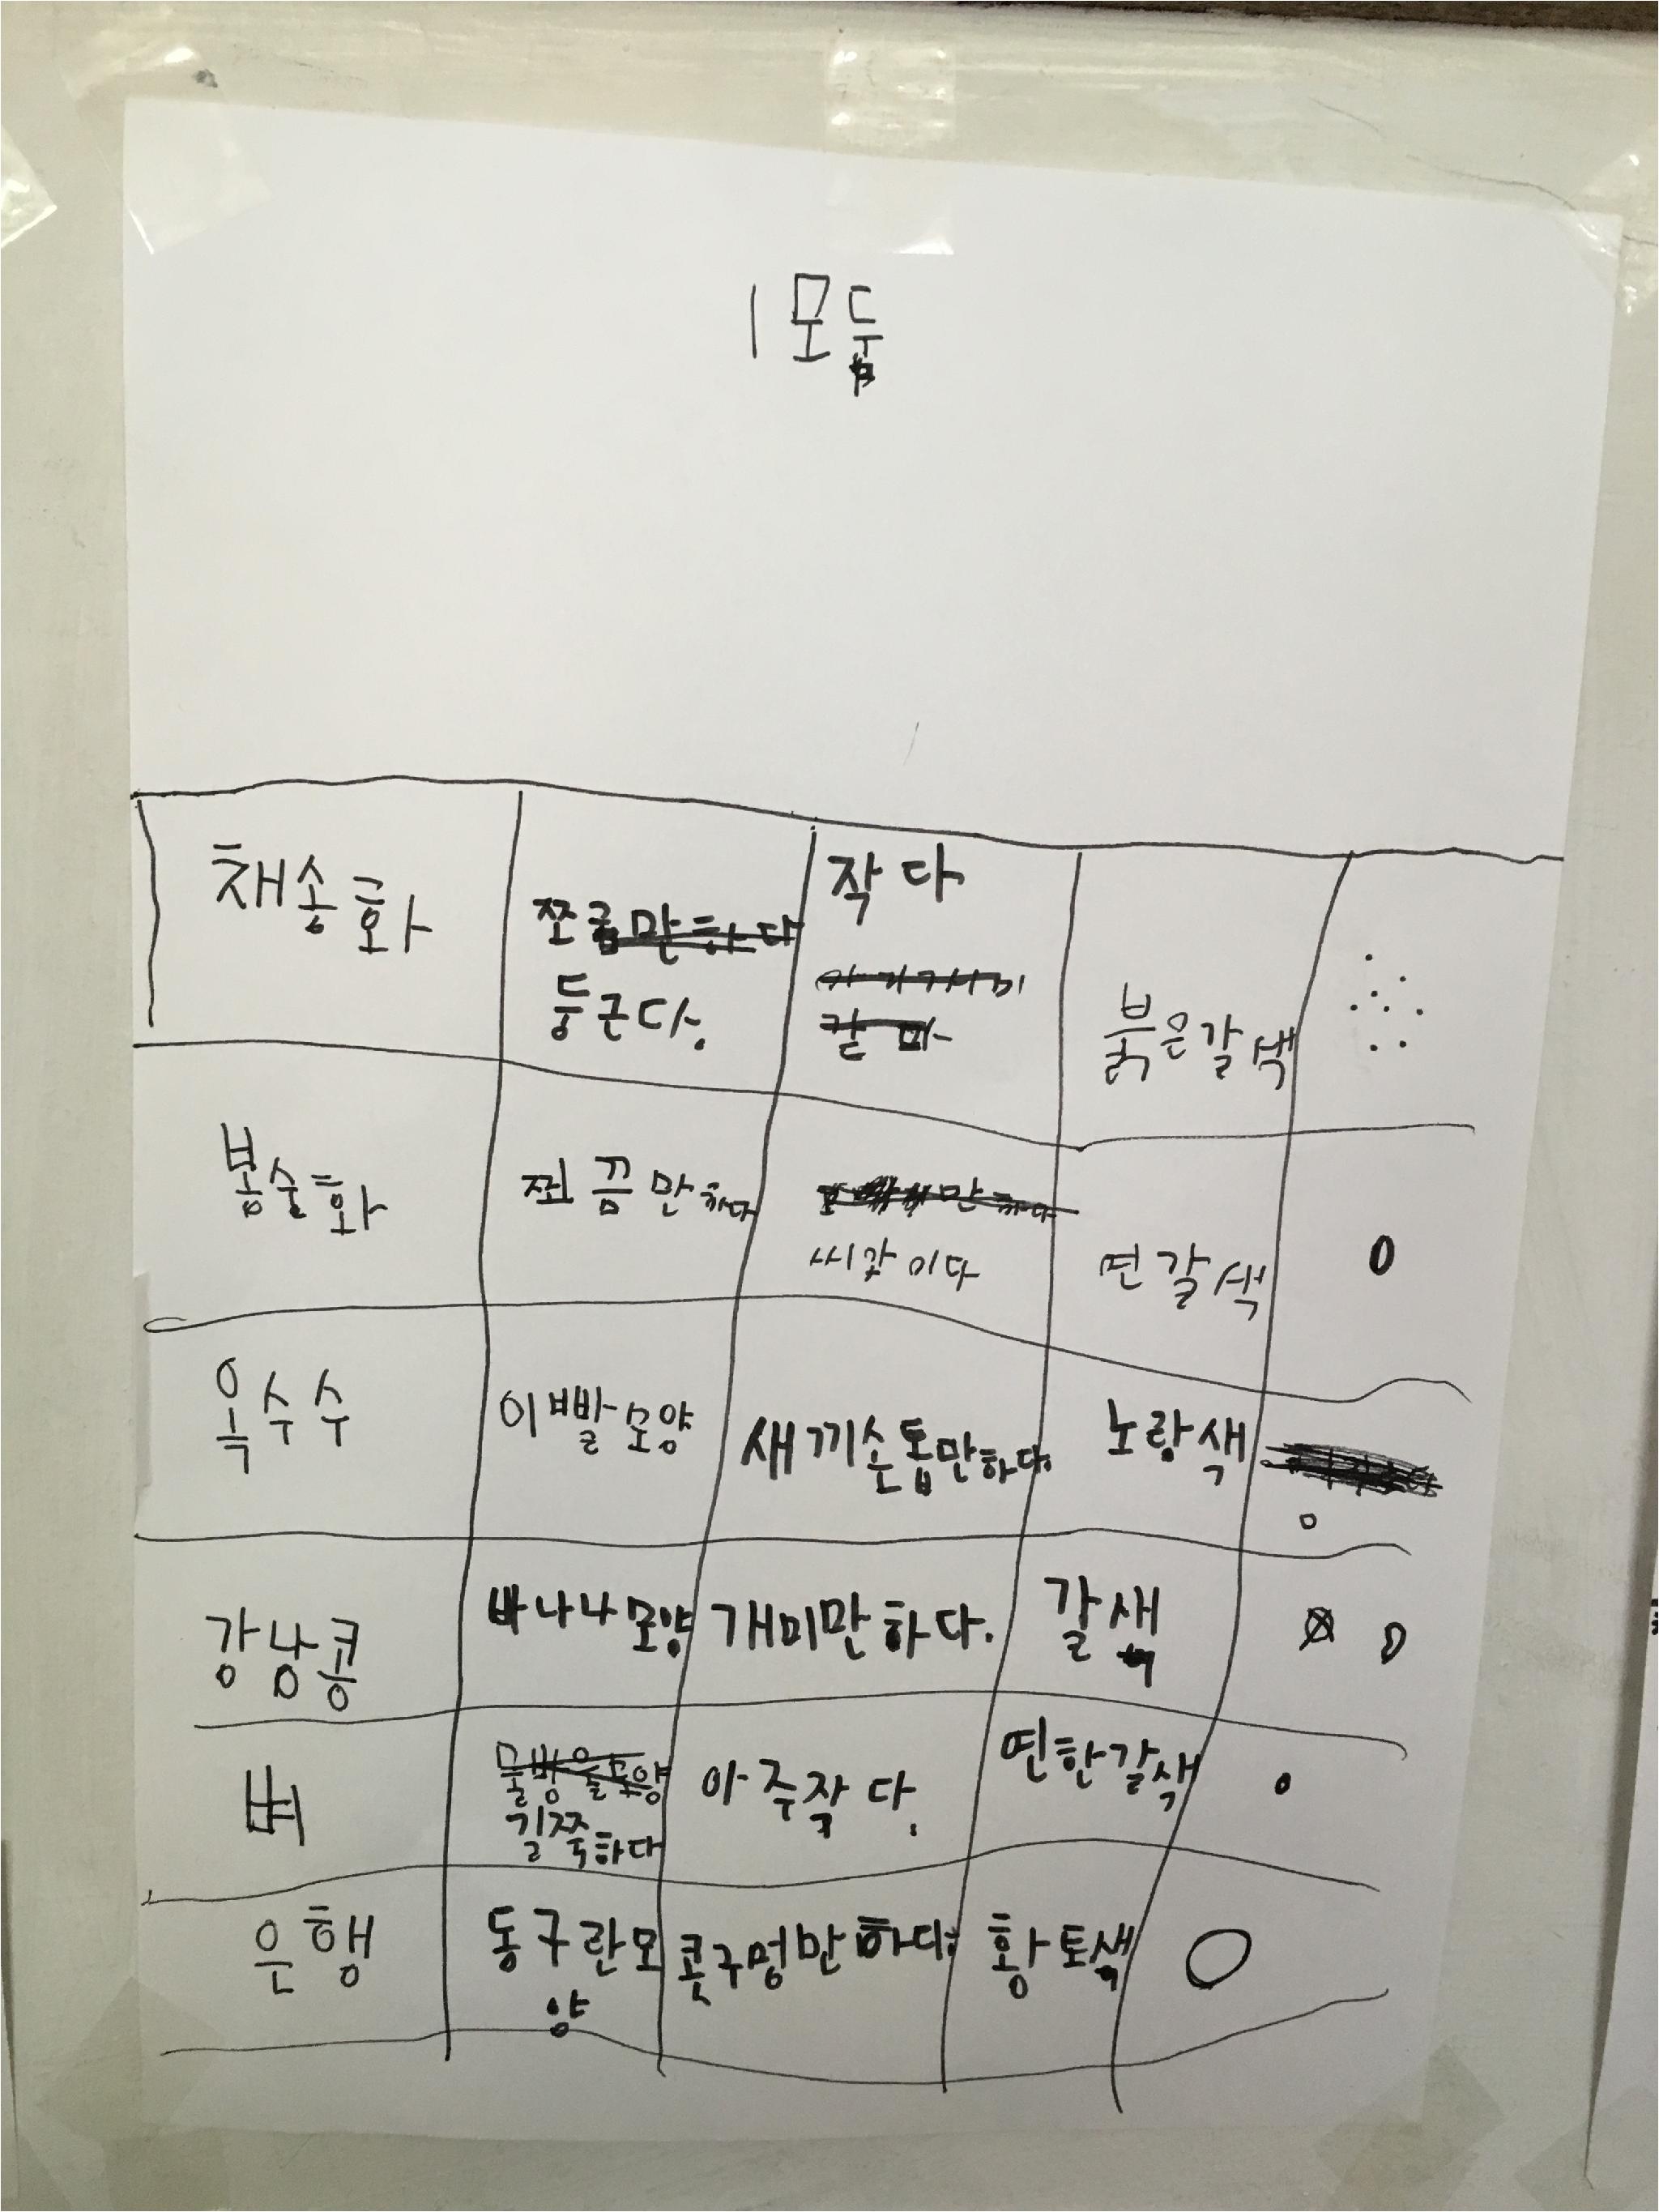 1모둠
채송화
쪼금만하다
둥근다.
작다
붉은갈색
봉숭화
쬐끔만하다
씨앗이다
연갈색
옥수수
이빨모양
새끼손톱만하다.
노랑색
강낭콩
바나나모양
개미만하다.
갈색
벼
물방울모양
길쭉하다
아주작다.
연한갈색
은행
동구란모
양
콧구멍만하다.
황토색